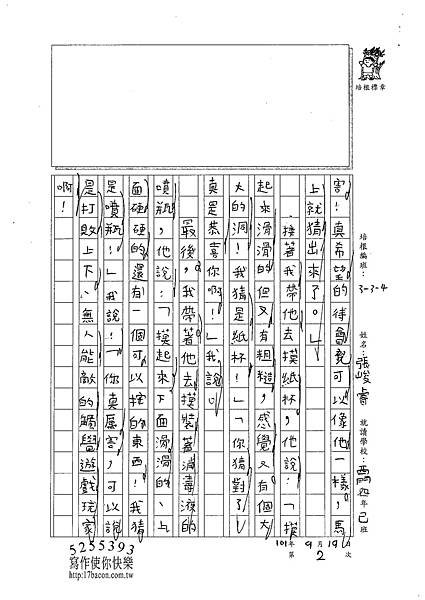 培根標章
培根編班：3-3-4
姓名：張峻睿
就讀學校：西門四年己班
害！真希望的待會兒可以像他一樣，馬
上就猜出來了。」
接著我帶他去摸紙杯，他說：「摸
起來滑滑的但又有粗糙，感覺又有個大
大的洞！我猜是紙杯！」「你猜對了！
真是恭喜你啊！」我說。
最後，我帶著他去摸裝著消毒液的
噴瓶，他說：「摸起來下面滑滑的、上
面硬硬的還有一個可以按的東西！我猜
是噴瓶！」我說！「你真厲害，可以說
是打敗上下、無人能敵的觸覺遊戲玩家
啊！
101年9月19日
第2次
5255393
寫作使你快樂
http://17bacon.com.tw